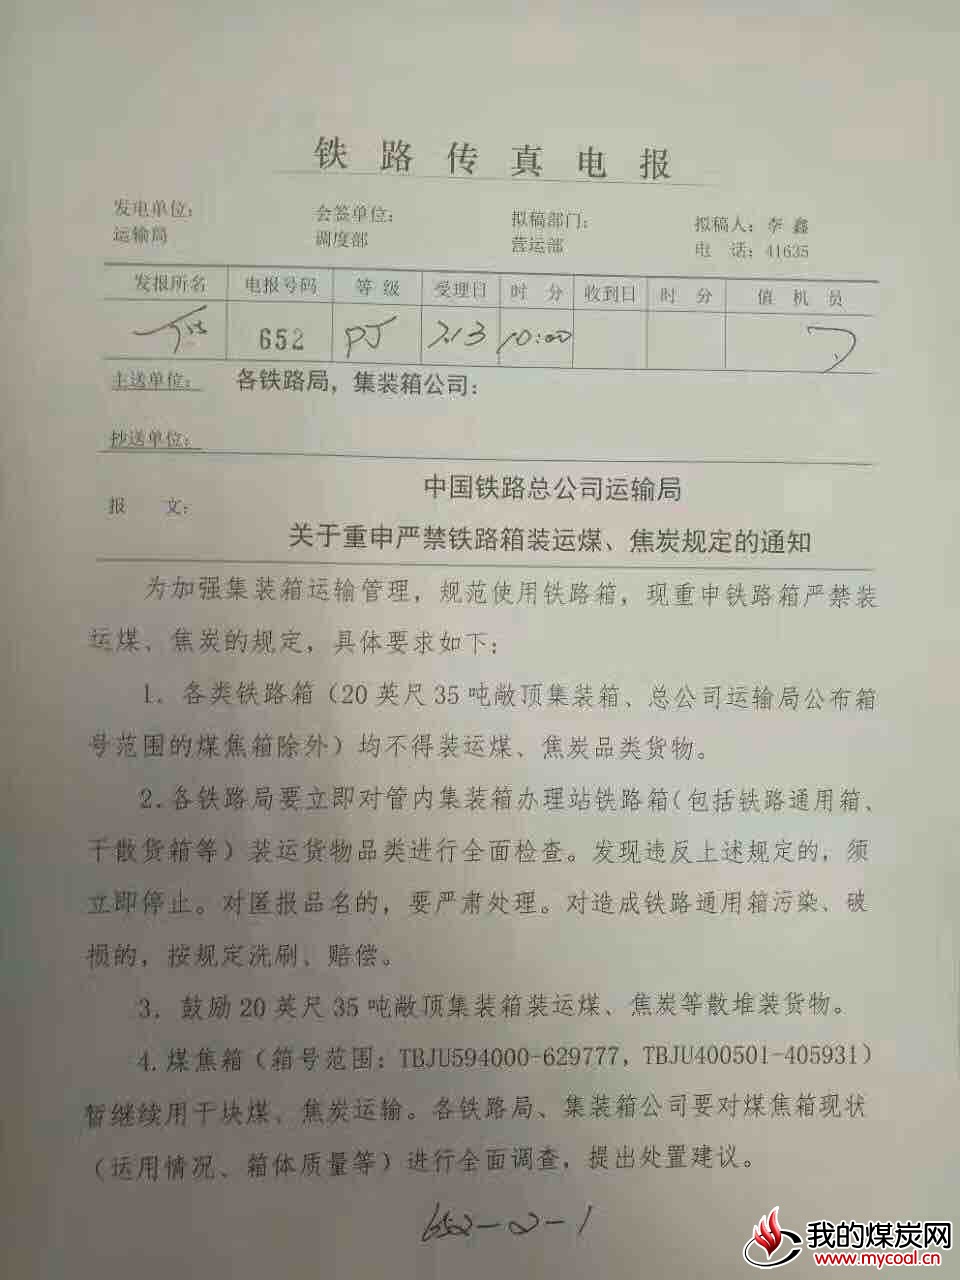 铁路传真电报
发电单位： 会签单位： 拟稿部门： 拟稿人：李鑫
运输局 调度部 营运部 电 话：41635
发报所名 电报号码 等 级 受理日 时 分 收到日 时 分 值 机 员
652 PJ 7.13 10:00
主送单位： 各铁路局，集装箱公司：
抄送单位：
中国铁路总公司运输局
报 文：
关于重申严禁铁路箱装运煤、焦炭规定的通知
为加强集装箱运输管理，规范使用铁路箱，现重申铁路箱严禁装
运煤、焦炭的规定，具体要求如下：
1．各类铁路箱（20英尺35吨敞顶集装箱、总公司运输局公布箱
号范围的煤焦箱除外）均不得装运煤、焦炭品类货物。
2.各铁路局要立即对管内集装箱办理站铁路箱（包括铁路通用箱、
干散货箱等）装运货物品类进行全面检查。发现违反上述规定的，须
立即停止。对匿报品名的，要严肃处理。对造成铁路通用箱污染、破
损的，按规定洗刷、赔偿。
3．鼓励20英尺35吨敞顶集装箱装运煤、焦炭等散堆装货物。
4.煤焦箱（箱号范围：TBJU594000-629777，TBJU400501-405931）
暂继续用于块煤、焦炭运输。各铁路局、集装箱公司要对煤焦箱现状
（运用情况、箱体质量等）进行全面调查，提出处置建议。
652-2-1
我的煤炭网
www.mycoal.cn